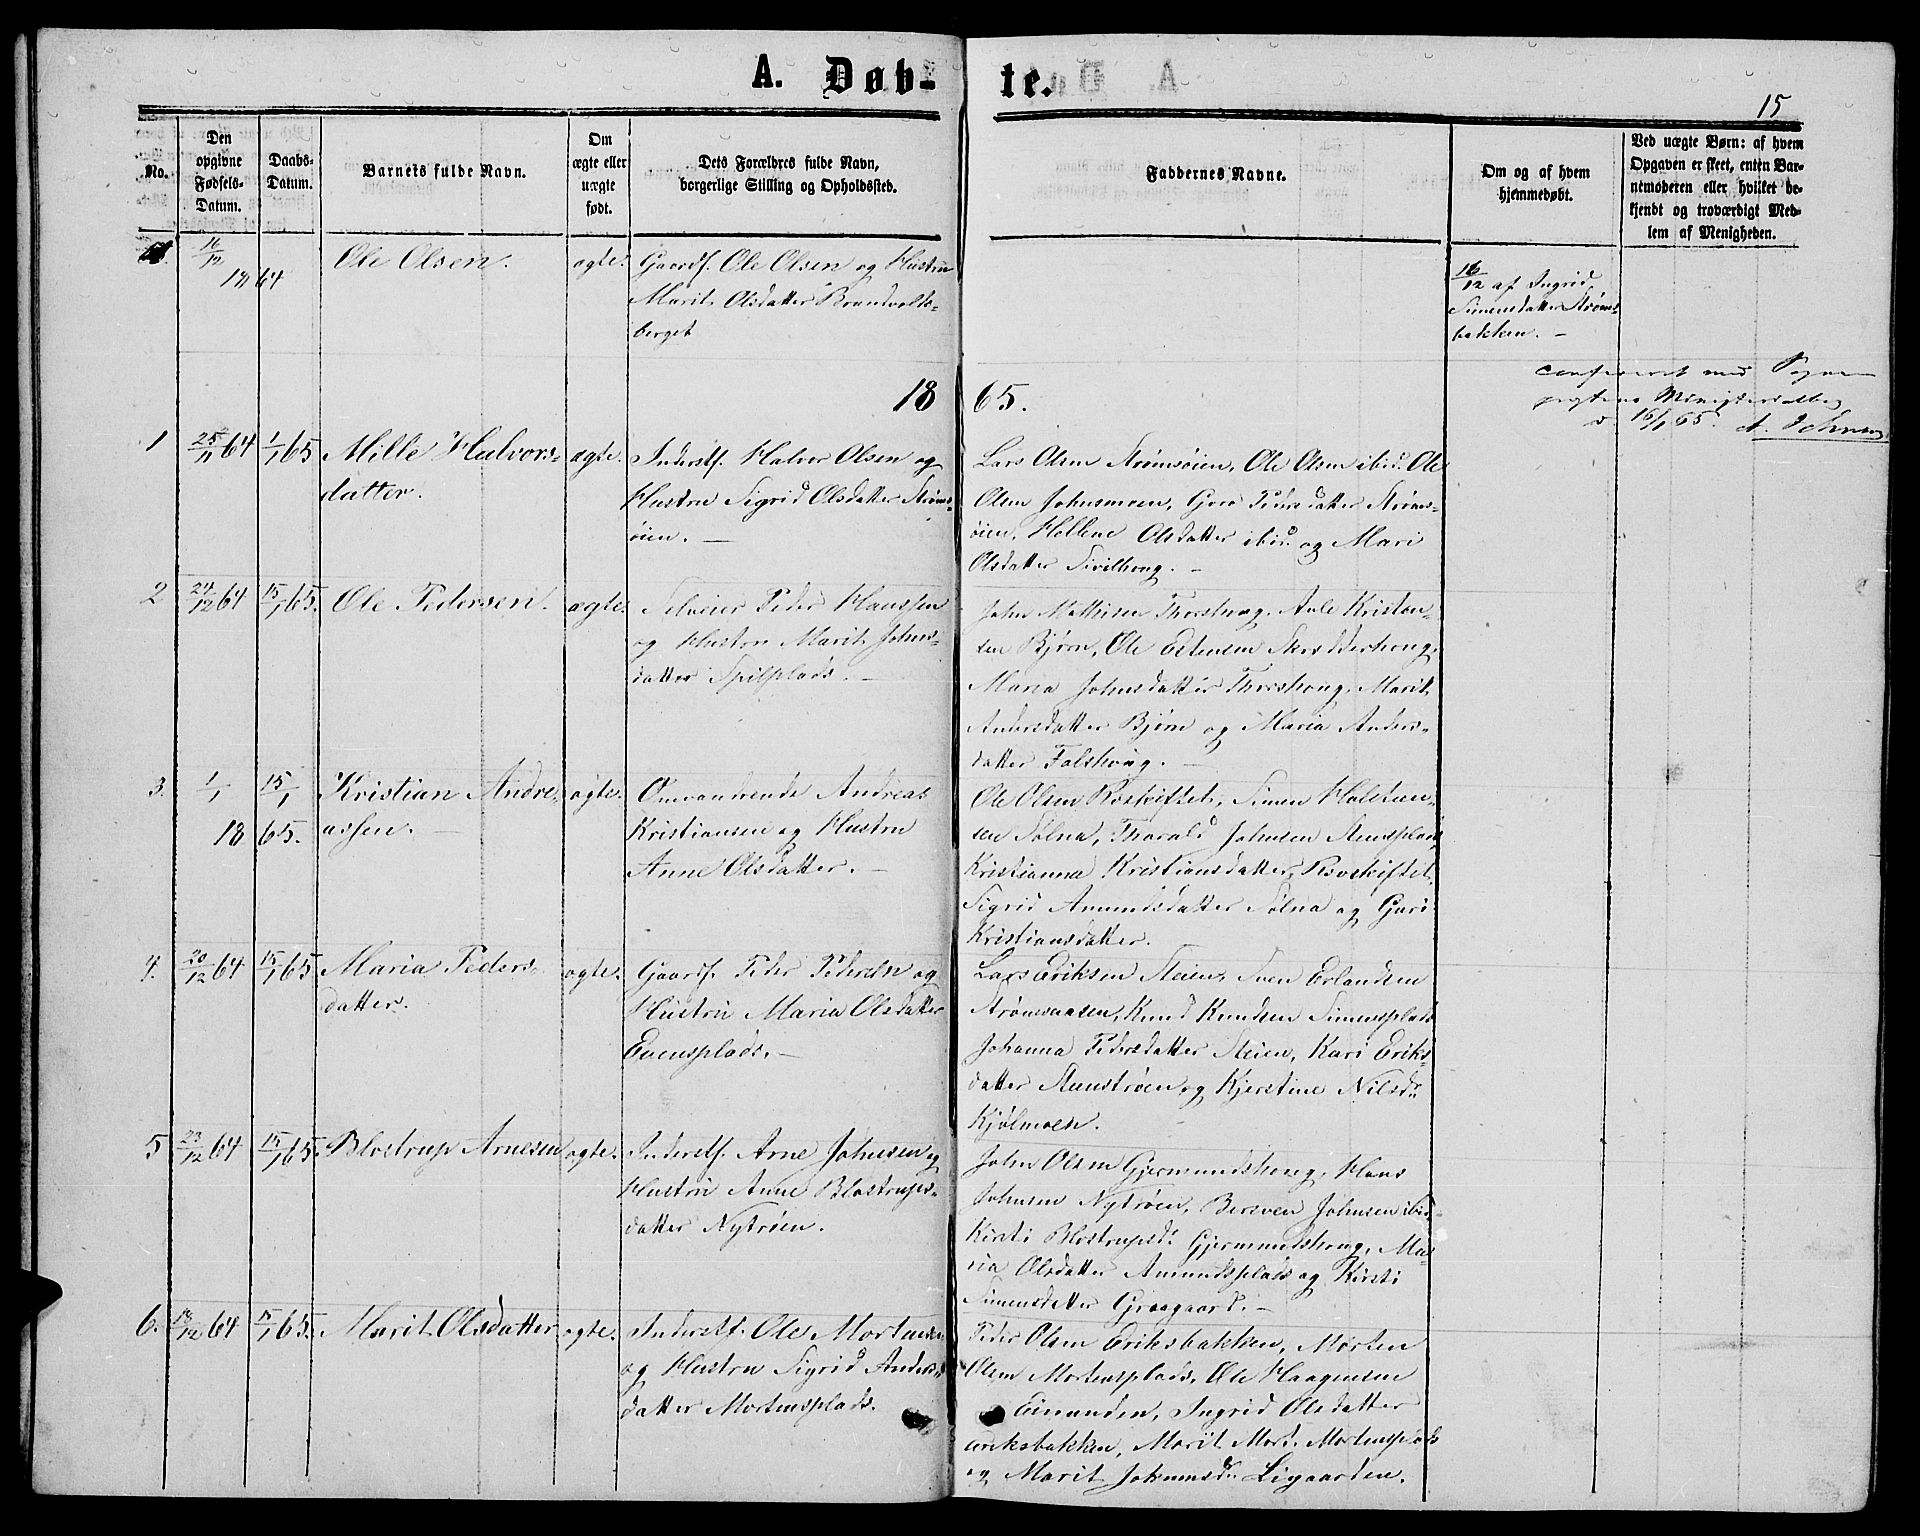 A. Døb-
te.
15
No.
Den
opgivne
Fødsels-
Datum.
Daabs-
Datum.
Barnets fulde Navn.
Om
ægte eller
uægte
født.
Dets Forældres fulde Navn,
borgerlige Stilling og Opholdssted.
Faddernes Navne.
Om og af hvem
hjemmedøbt.
Ved uægte Børn: af hvem
Opgaven er skeet, enten Bar-
nemoderen eller hvilket be-
kjendt og troværdigt Med-
lem af Menigheden.
16/12
1864
Ole Olsen.
ægte.
Gaardf. Ole Olsen og Hustru
Marit Olsdatter Brandvolds-
berget
16/12 af Ingrid
Simensdatter Strøms-
bakken. –
1865.
conferecet med Sogne
prestens Ministerialbog
d. 16/1 65.
1
25/11 64
1/1 65
Mille Halvors-
datter.
ægte.
Inderstf. Halvor Olsen og
Hustru Sigrid Olsdatter Strøms-
øien. –
Lars Olsen Strømsøien, Ole Olsen ibid. Ole
Olsen Johnsmoen, Goro Pedersdatter Strøms-
øien, Hellene Olsdatter ibid. og Mari
Olsdatter Sivilhong. –
2
24/12 64
15/1 65.
Ole Pedersen.
ægte.
Selveier Peder Hanssen
og Hustru Marit Johns-
datter Spilplads. –
John Mathisen Thorshoug, Avle Kristen-
sen Bjørn, Ole Estensen Skrædderhoug,
Maria Johnsdatter Thorshoug, Marit
Andersdatter Bjørn og Maria Anders-
datter Falshoug. –
3.
1/1
15/1
1865.
Kristian Andre-
assen. –
ægte.
Omvandrende Andreas
Kristiansen og Hustru
Anne Olsdatter. –
Ole Olsen Roskiftet, Simen Halstens-
sen Sølna, Thorald Johnsen Stensplads
Kristianna Kristiansdatter Rovskiftet,
Sigrid Amundsdatter Sølna og Guri
Kristiansdatter.
4.
20/12 64
15/1 65
Maria Peders-
datter.
ægte.
Gaardf. Peder Pedersen og
Hustru Maria Olsdatter
Evensplads. –
Lars Eriksen Steien, Sven Erlandsen
Strømsaasen, Knud Knudsen Simensplads
Johanna Pedersdatter Steien, Kari Eriks-
datter Stenstrøen og Kjerstine Nilsdr
Kjølmoen.
5
23/12 64
15/1 65.
Blostrup Arnesen
ægte.
Inderstf. Arne Johnsen og
Hustru Anne Blostrups-
datter Nytrøen.
John Olsen Gjermundshoug, Hans
Johnsen Nytrøen, Bersven Johnsen ibid.
Kirsti Blostrupsd. Gjermundshoug, Ma-
ria Olsdatter Amundsplads og Kirsti
Simensdatter Graagaard. –
6.
18/12 64
15/1 65.
Marit Olsdatter
ægte.
Inderstf. Ole Mortensen
og Hustru Sigrid Anders-
datter Mortensplads.
Peder Olsen Eriksbakken, Morten
Olsen Mortensplads, Ole Haagensen
Eimunden, Ingrid Olsdatter
Eriksbakken, Marit Mort. Mortensplads
og Marit Johannsdr. Ligaarden.